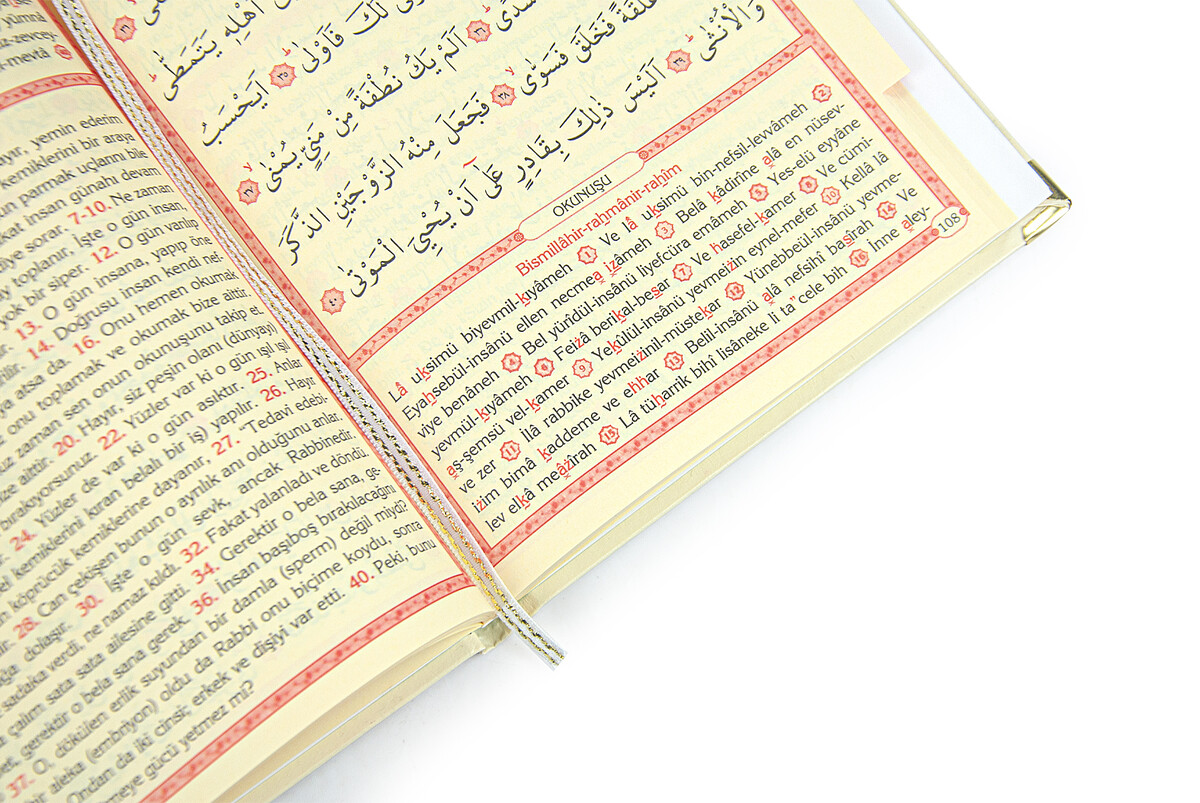 yümnâ
z-zevcey-
k-mevtâ
ayır, yemin ederim
kemiklerini bir araya
un parmak uçlarını bile
kat insan günahı devam
diye sorar. 7-10. Ne zaman
ay toplanır, İşte o gün insan,
yok bir siper. 12. O gün varılıp
r. 13. O gün insana, yapıp öne
ilir. 14. Doğrusu insan kendi nef-
aya atsa da. 16. Onu hemen okumak
z onu toplamak ve okumak bize aittir.
uz zaman sen onun okunuşunu takip et.
ize aittir. 20. Hayır, siz peşin olanı (dünyayı)
bırakıyorsunuz. 22. Yüzler var ki o gün ışıl ışıl
24. Yüzler de var ki o gün asıktır. 25. Anlar
el kemiklerini kıran belalı bir iş) yapılır. 26. Hayır
n köprücük kemiklerine dayanır, 27. "Tedavi edebi-
28. Can çekişen bunun o ayrılık anı olduğunu anlar.
ağa dolaşır. 30. İşte o gün sevk, ancak Rabbinedir.
sadaka verdi, ne namaz kıldı. 32. Fakat yalanladı ve döndü.
a çalım sata sata ailesine gitti. 34. Gerektir o bela sana, ge-
er, gerektir o bela sana gerek. 36. İnsan başıboş bırakılacağını
37. O, dökülen erlik suyundan bir damla (sperm) değil miydi?
bir aleka (embriyon) oldu da Rabbi onu biçime koydu, sonra
Ondan da iki cinsi; erkek ve dişiyi var etti. 40. Peki, bunu
meye gücü yetmez mi?
اَهْلِهٖ يَتَمَطّٰىۜ ﴿٣٣﴾
لَكَ فَاَوْلٰىۜ ﴿٣٥﴾ اَيَحْسَبُ
سُدًىۜ ﴿٣٦﴾ اَلَمْ يَكُ نُطْفَةً مِنْ مَنِيٍّ يُمْنٰىۙ ﴿٣٧﴾
عَلَقَةً فَخَلَقَ فَسَوّٰىۙ ﴿٣٨﴾ فَجَعَلَ مِنْهُ الزَّوْجَيْنِ الذَّكَرَ
وَالْاُنْثٰىۜ ﴿٣٩﴾ اَلَيْسَ ذٰلِكَ بِقَادِرٍ عَلٰٓى اَنْ يُحْيِيَ الْمَوْتٰى ﴿٤٠﴾
OKUNUŞU
Bismillâhir-rahmânir-rahîm
Lâ uksimü biyevmil-kıyâmeh 1 Ve lâ uksimü bin-nefsil-levvâmeh 2
Eyahsebül-insânü ellen necmea izâmeh 3 Belâ kâdirîne alâ en nüsev-
viye benâneh 4 Bel yürîdül-insânü liyefcüra emâmeh 5 Yes-elü eyyâne
yevmül-kıyâmeh 6 Feizâ berikal-besar 7 Ve hasefel-kamer 8 Ve cümi-
aş-şemsü vel-kamer 9 Yekulül-insânü yevmeizin eynel-mefer 10 Kellâ lâ
ve zer 11 İlâ rabbike yevmeizinil-müstekar 12 Yünebbeül-insânü yevme-
izim bimâ kaddeme ve ehhar 13 Belil-insânü alâ nefsihî basîrah 14 Ve
lev elkâ meâzîrah 15 Lâ tüharrik bihî lisâneke li ta" cele bih 16 İnne aley-
108